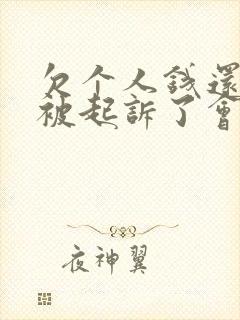 欠个人錢還
被起訴了會
夜神翼